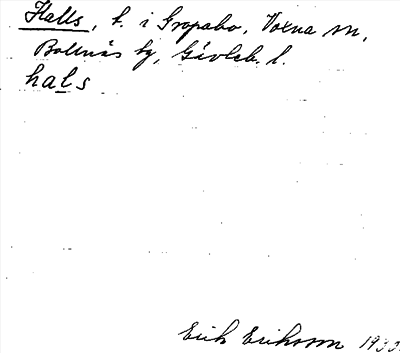 Halls, t. i Gropabo, Voxna sn,
Bollnäs tg, Gävleb. l.
hals
Erik Eriksson